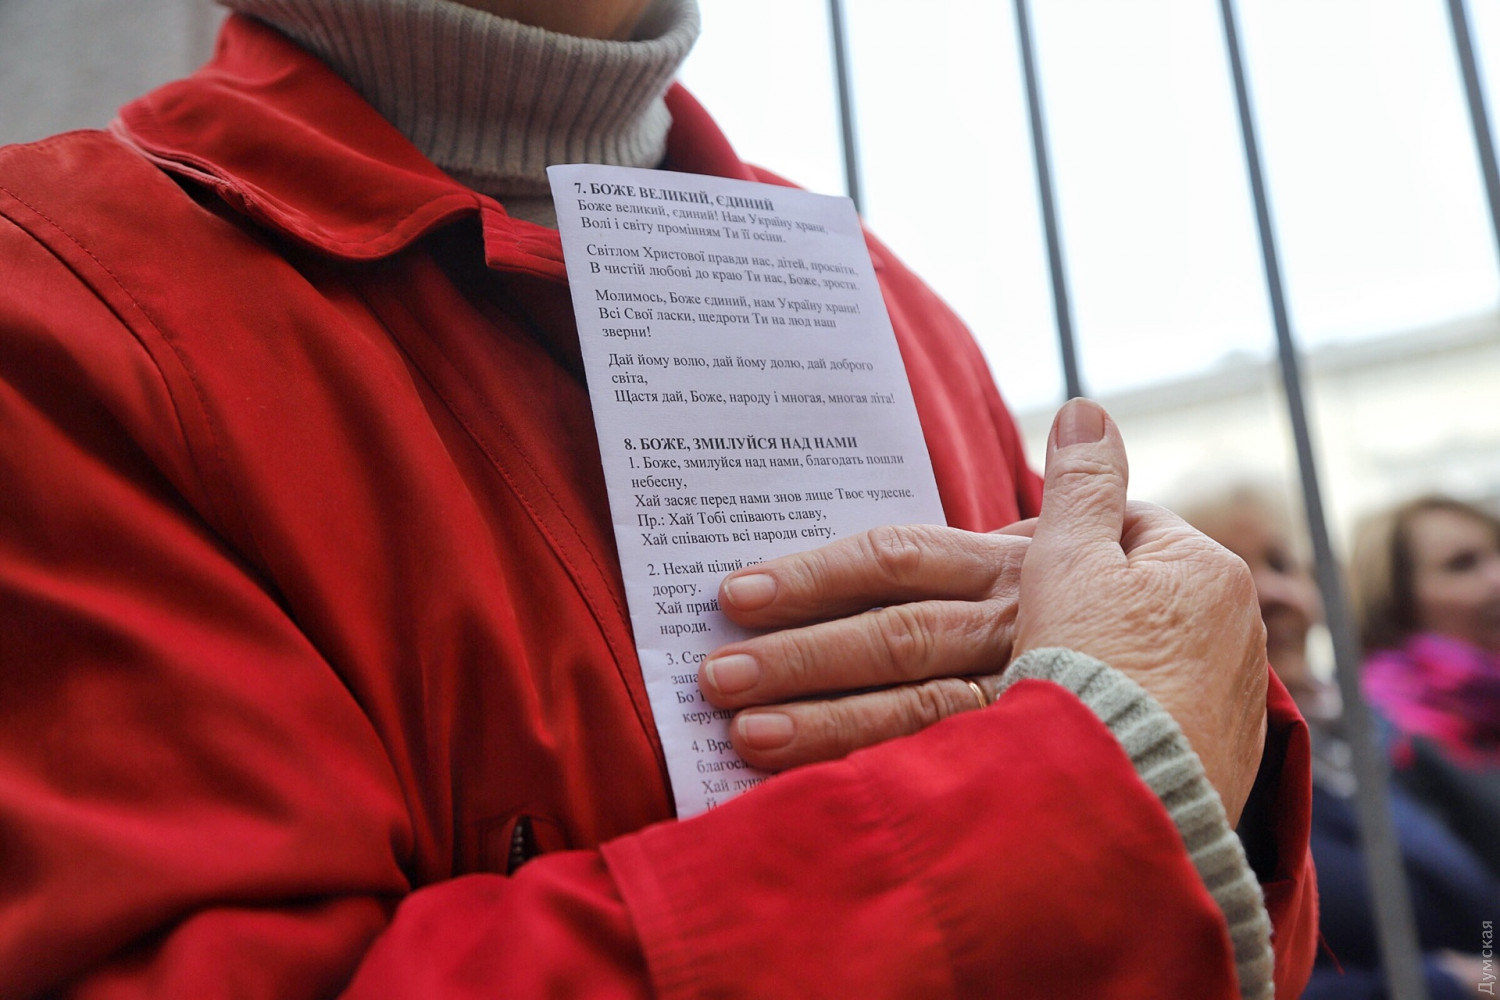 7. БОЖЕ ВЕЛИКИЙ, ЄДИНИЙ
Боже великий, єдиний! Нам Україну храни,
Волі і світу промінням Ти її осіни.
Світлом Христової правди нас, дітей, просвіти,
В чистій любові до краю Ти нас, Боже, зрости.
Молимось, Боже єдиний, нам Україну храни!
Всі Свої ласки, щедроти Ти на люд наш
зверни!
Дай йому волю, дай йому долю, дай доброго
світа,
Щастя дай, Боже, народу і многая, многая літа!
8. БОЖЕ, ЗМИЛУЙСЯ НАД НАМИ
1. Боже, змилуйся над нами, благодать пошли
небесну,
Хай засяє перед нами знов лице Твоє чудесне.
Пр.: Хай Тобі співають славу,
Хай співають всі народи світу.
2. Нехай цілий
дорогу.
Хай
народи.
3.
Бо
4.
Хай
Думская